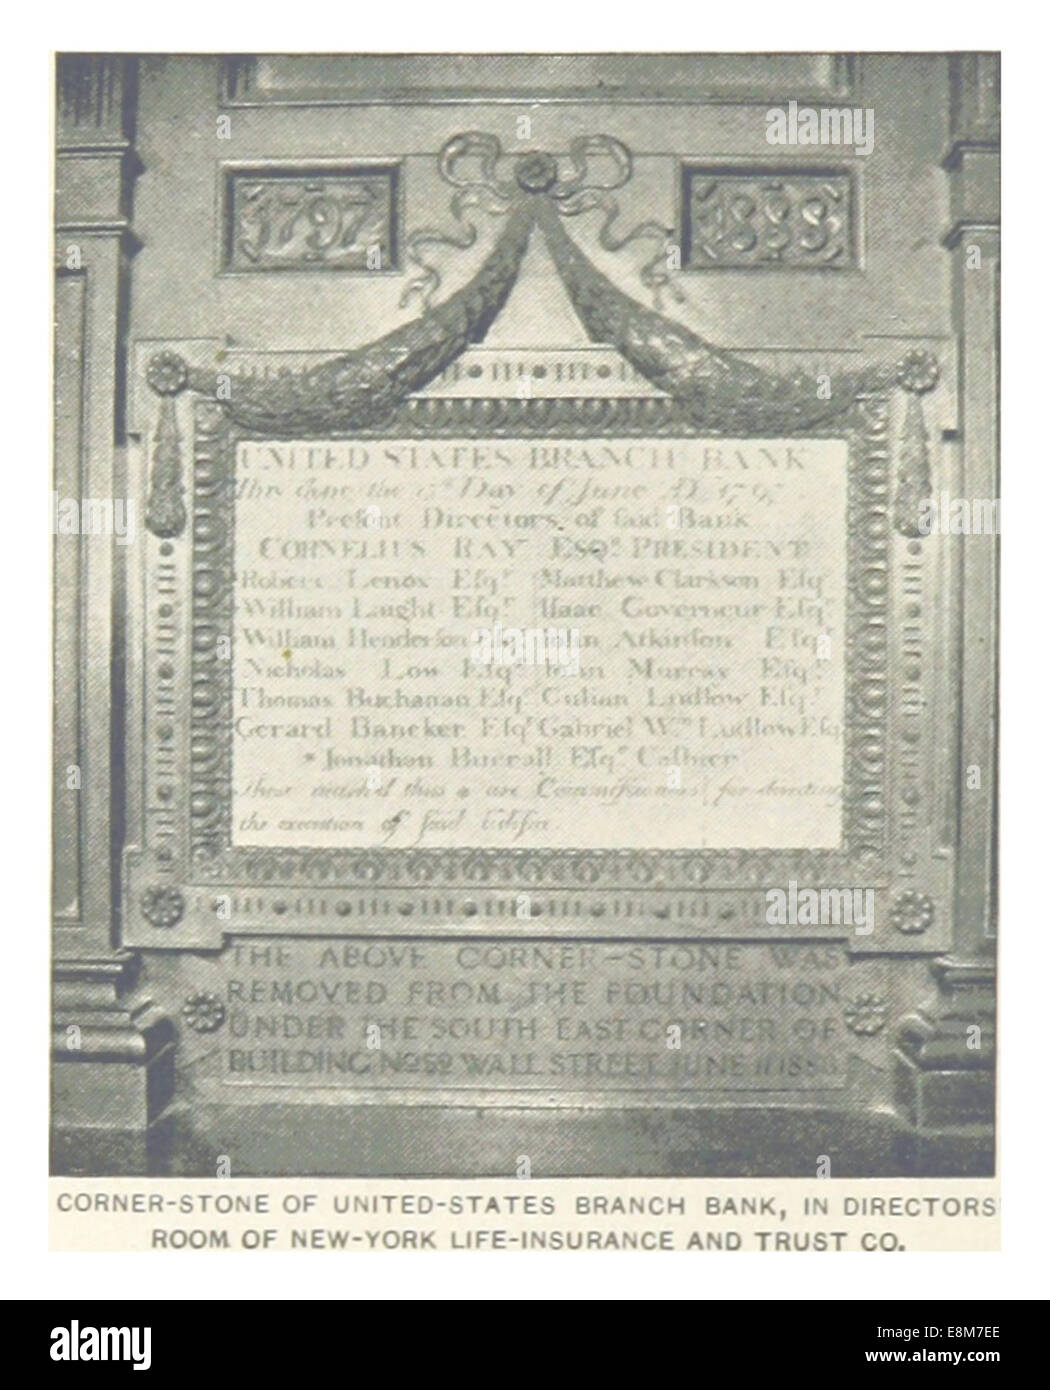 1797
1888
UNITED STATES BRANCH BANK
This done the Day of June AD 1797
Preſent Directors of ſaid Bank
CORNELIUS RAY ESQR. PRESIDENT
Robert Lenox Eſqr. Matthew Clarkson Eſqr.
William Laight Eſqr. Iſaac Governeur Eſqr.
William Henderson Eſqr. John Atkinſon Eſqr.
Nicholas Low Eſqr. John Murray Eſqr.
Thomas Buchanan Eſqr. Culian Ludlow Eſqr.
Gerard Bancker Eſqr. Gabriel Wm. Ludlow Eſqr.
* Jonathan Burrall Eſqr. Caſhier
those mark'd thus * are Commiſſioners for directing
the execution of ſaid Edifice.
THE ABOVE CORNER-STONE WAS
REMOVED FROM THE FOUNDATION
UNDER THE SOUTH EAST CORNER OF
BUILDING No 52 WALL STREET JUNE 11 1888
CORNER-STONE OF UNITED-STATES BRANCH BANK, IN DIRECTORS'
ROOM OF NEW-YORK LIFE-INSURANCE AND TRUST CO.
alamy
alamy
Image ID: E8M7EE
www.alamy.com